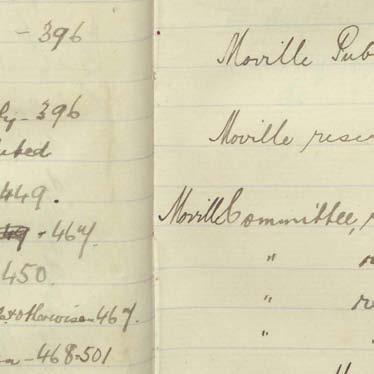 - 396
- 396
449.
+ 467.
450.
otherwise - 467.
- 468-501
Moville Pub
Moville rese
Moville Committee,
"
"
"